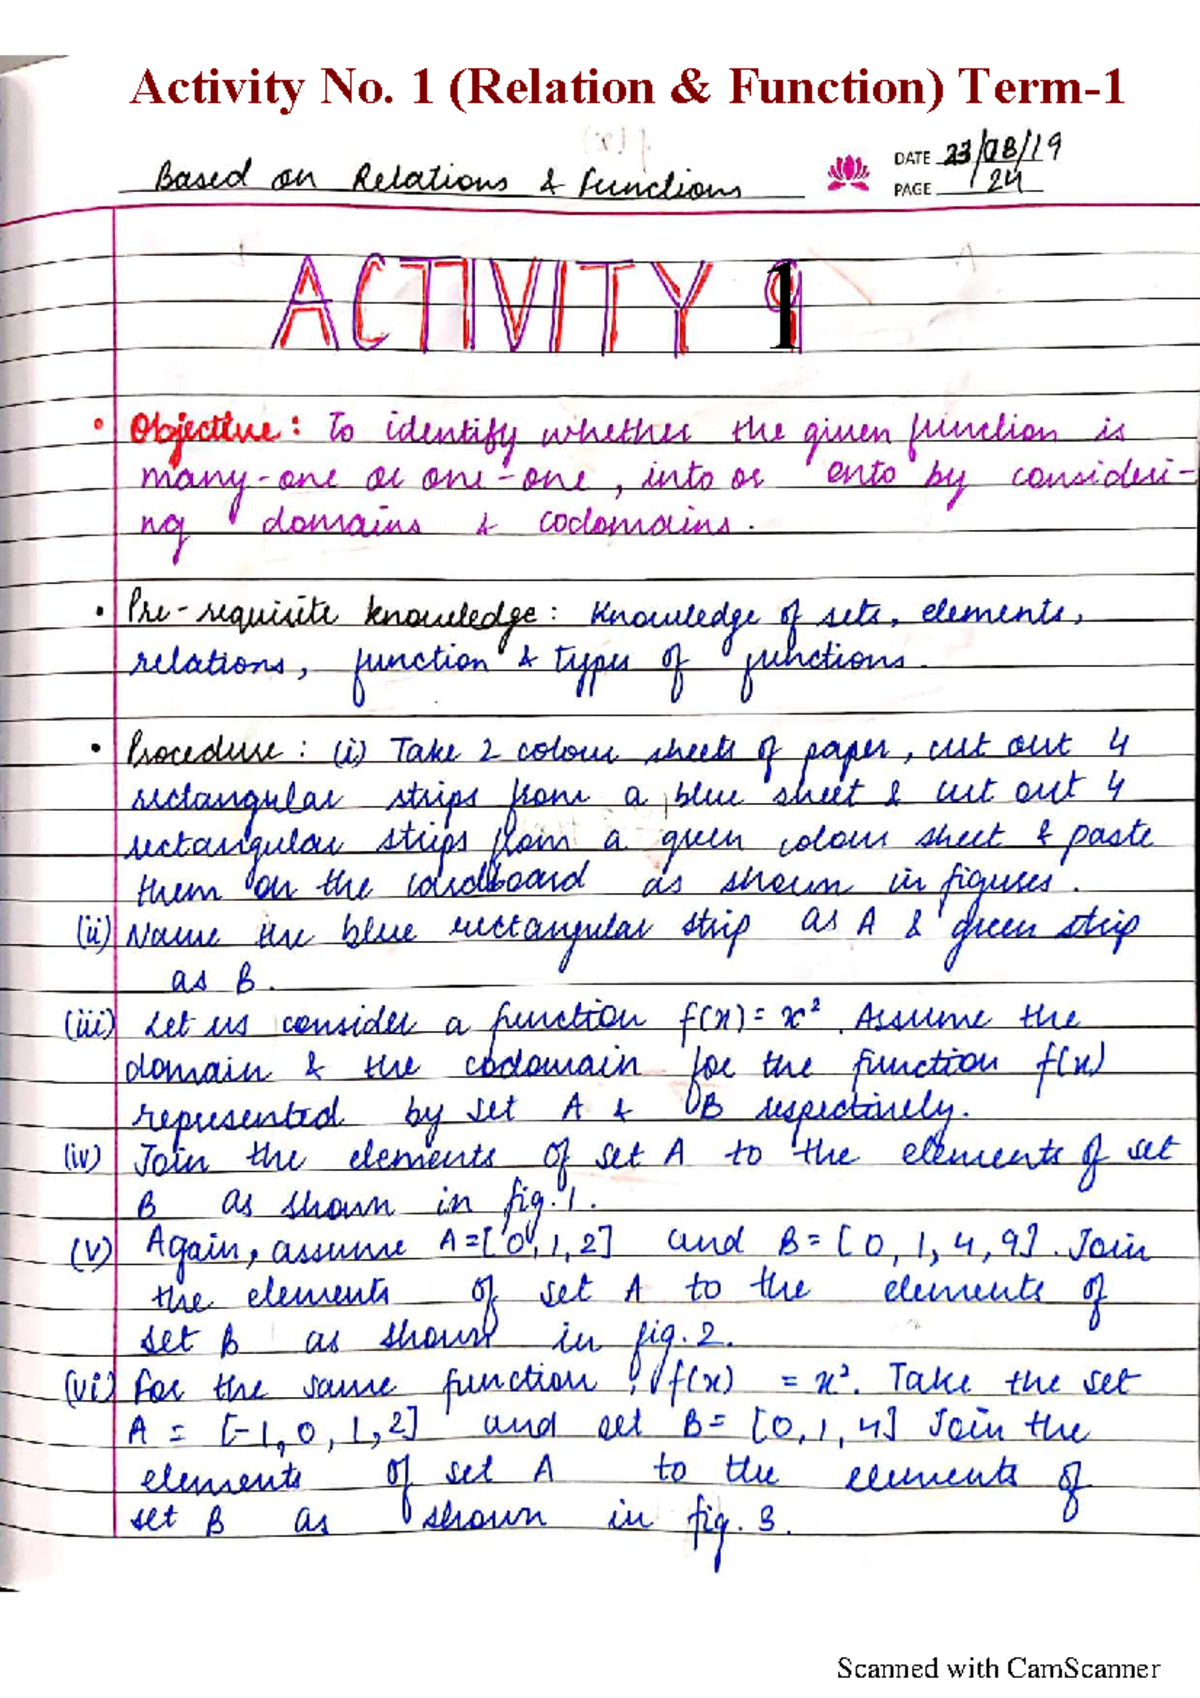 Activity No. 1 (Relation & Function) Term-1
Based on Relations & Functions
DATE 23/08/19
PAGE 24
ACTIVITY 1
• Objective: To identify whether the given function is
many-one or one-one, into or onto by consideri-
ng domains & codomains.
• Pre-requisite knowledge: Knowledge of sets, elements,
relations, function & types of functions.
• Procedure: (i) Take 2 colour sheets of paper, cut out 4
rectangular strips from a blue sheet & cut out 4
rectangular strips from a green colour sheet & paste
them on the cardboard as shown in figures.
(ii) Name the blue rectangular strip as A & green strip
as B.
(iii) Let us consider a function f(x) = x². Assume the
domain & the codomain for the function f(x)
represented by set A & B respectively.
(iv) Join the elements of set A to the elements of set
B as shown in fig. 1.
(v) Again, assume A=[0,1,2] and B=[0,1,4,9]. Join
the elements of set A to the elements of
set B as shown in fig. 2.
(vi) For the same function, f(x) = x². Take the set
A = [-1,0,1,2] and set B=[0,1,4] Join the
elements of set A to the elements of
set B as shown in fig. 3.
Scanned with CamScanner